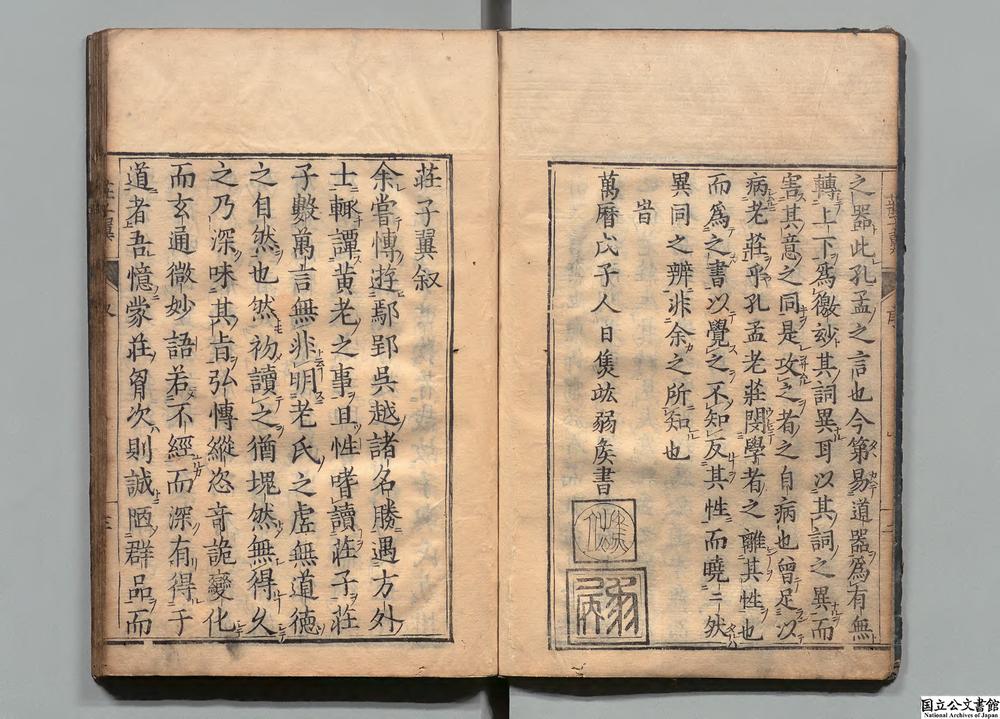 之器此孔孟之言也今第易道器爲有無
轉上下爲徼玅其詞異耳以其詞之異而
害其意之同是攻之者之自病也曾足以
病老莊乎孔孟老莊閔學者之離其性也
而爲之書以覺之不知反其性而曉〻然
異同之辨非余之所知也
旹
萬曆戊子人日焦竑弱矦書
焦竑
弱矦
莊子翼叙
余嘗慱遊鄢郢吳越諸名勝遇方外
士輒譚黄老之事且性嗜讀莊子莊
子數萬言無非明老氏之虗無道德
之自然也然初讀之猶塊然無得久
之乃深味其旨弘慱縱恣竒詭變化
而玄通微妙語若不經而深有得于
道者吾憶蒙莊胷次則誠陋群品而
莊子翼
叙
三
序
國立公文書館
National Archives of Japan